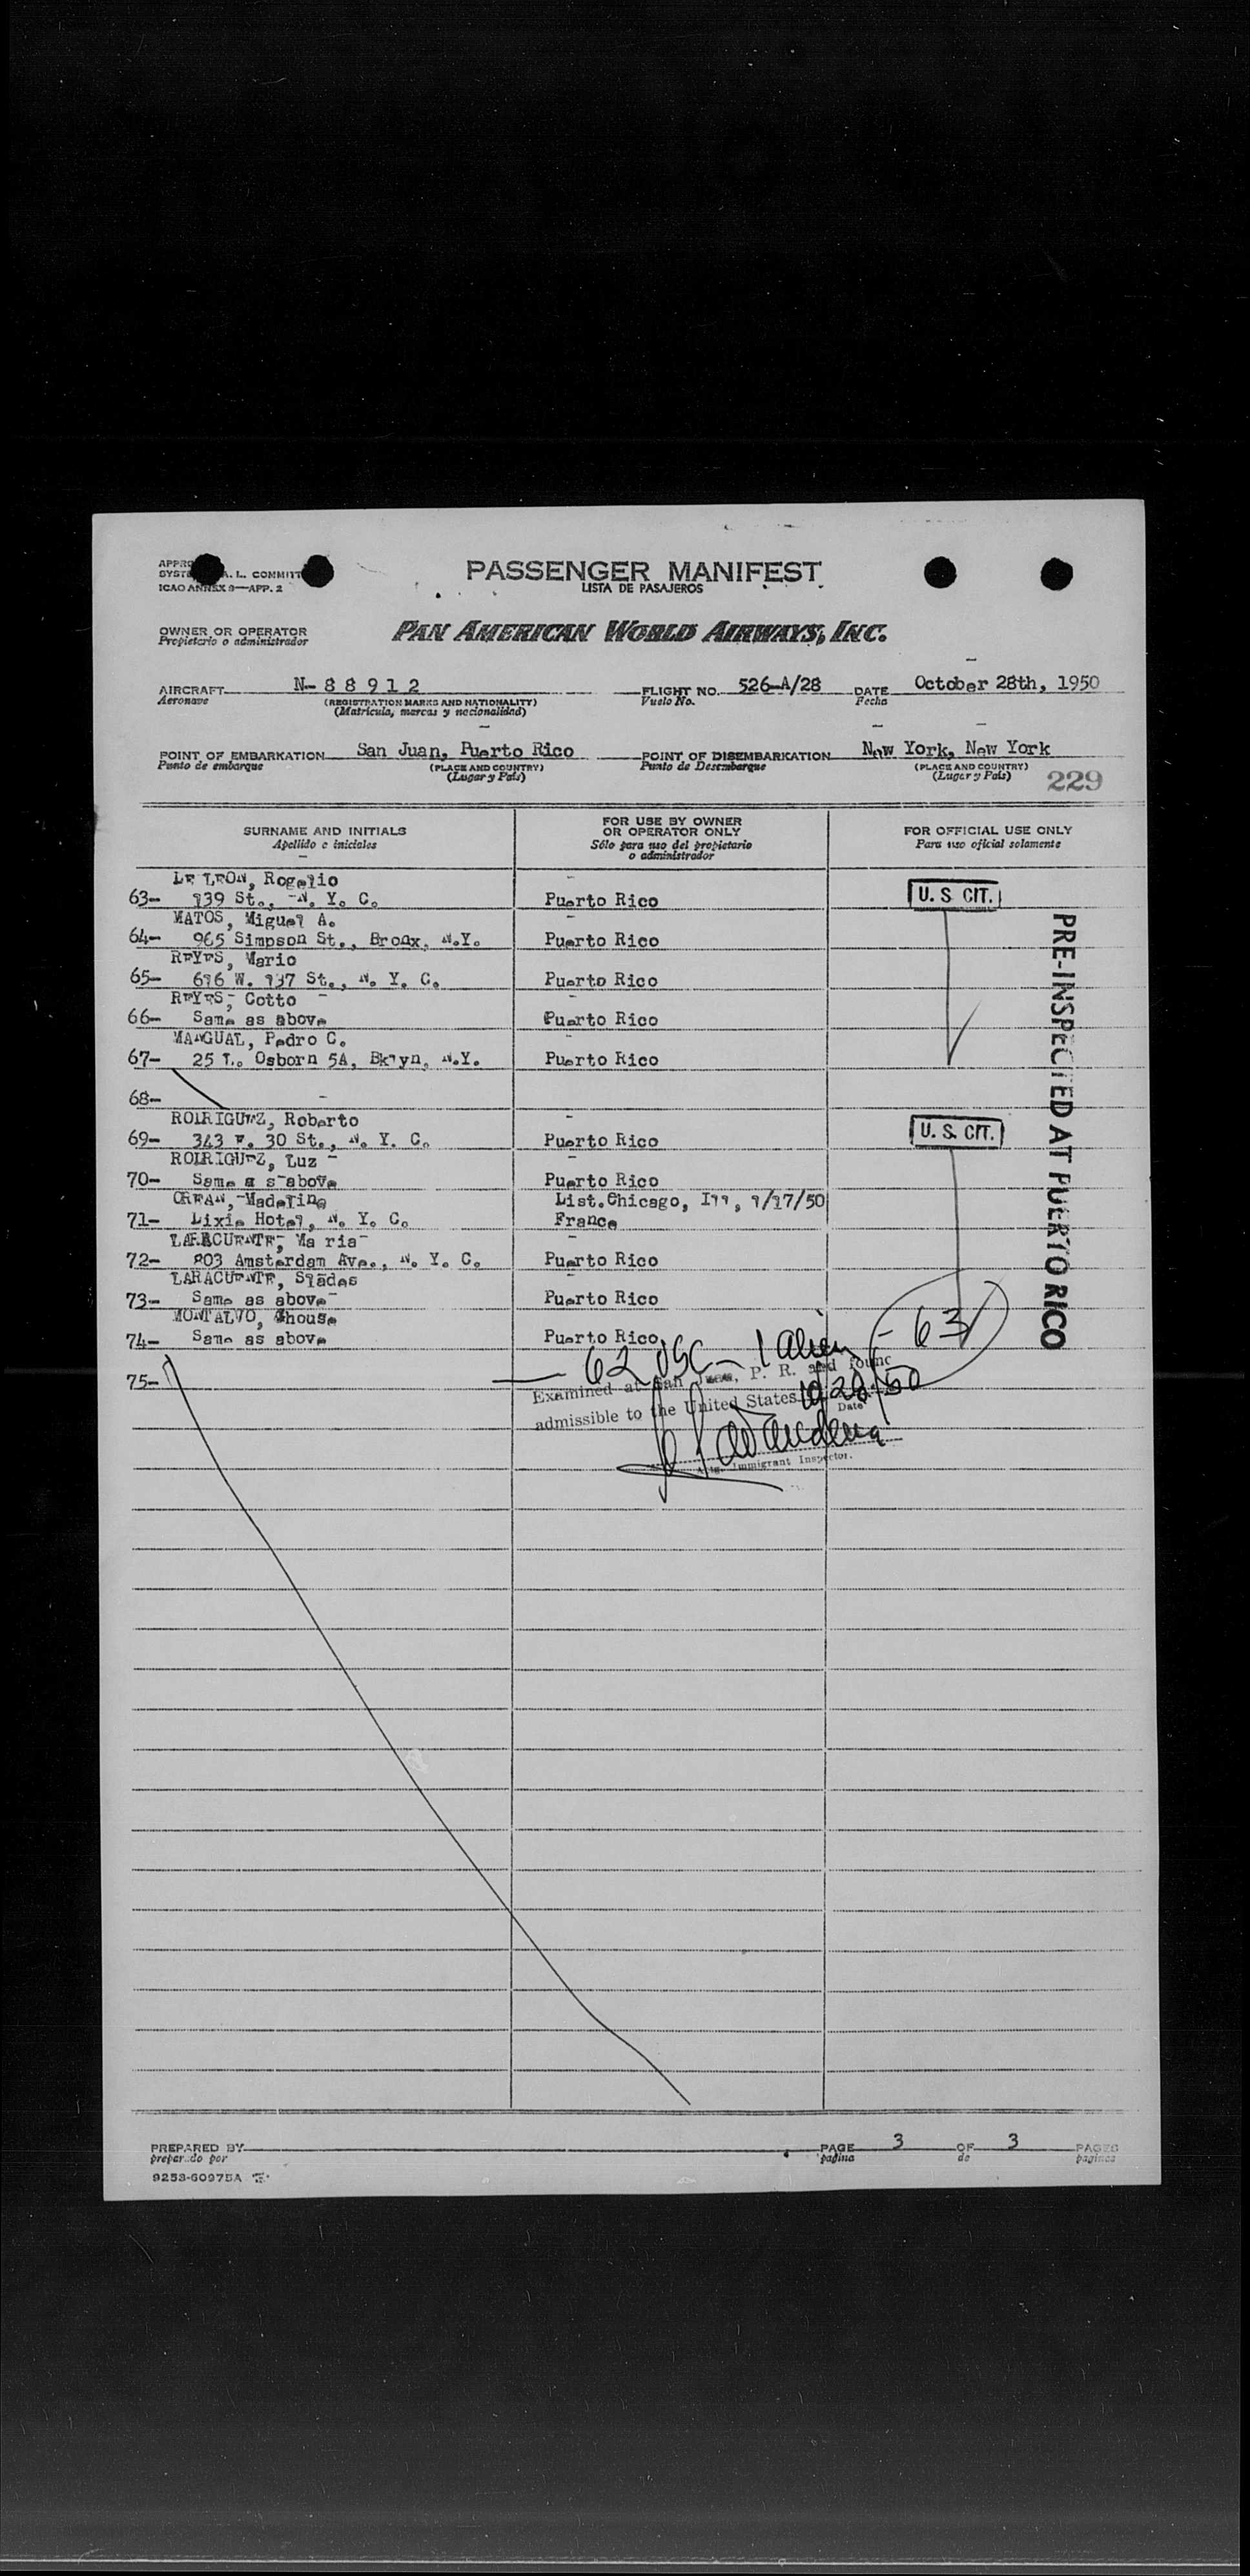 PASSENGER MANIFEST
LISTA DE PASAJEROS
ICAO ANNEX 9—APP. 2
OWNER OR OPERATOR
Propietario o administrador
PAN AMERICAN WORLD AIRWAYS, INC.
AIRCRAFT N- 8 8 9 1 2 FLIGHT NO. 526-A/28 DATE October 28th, 1950
Aeronave (REGISTRATION MARKS AND NATIONALITY) Vuelo No. Fecha
(Matrícula, marcas y nacionalidad)
POINT OF EMBARKATION San Juan, Puerto Rico POINT OF DISEMBARKATION New York, New York
Punto de embarque (PLACE AND COUNTRY) Punto de Desembarque (PLACE AND COUNTRY)
(Lugar y País) (Lugar y País) 229
SURNAME AND INITIALS
Apellido e iniciales
FOR USE BY OWNER
OR OPERATOR ONLY
Sólo para uso del propietario
o administrador
FOR OFFICIAL USE ONLY
Para uso oficial solamente
Rogelio
63- 139 St., N. Y. C. Puerto Rico U. S. CIT.
MATOS, Miguel A.
64- 965 Simpson St., Bronx, N.Y. Puerto Rico
REYES, Mario
65- 616 W. 137 St., N. Y. C. Puerto Rico
REYES, Cotto
66- Same as above Puerto Rico
MANGUAL, Pedro C.
67- 25 Osborn 5A, Bklyn, N.Y. Puerto Rico
68-
RODRIGUEZ, Roberto
69- 343 30 St., N. Y. C. Puerto Rico U. S. CIT.
RODRIGUEZ, Luz
70- Same a s above Puerto Rico
Madeline List. Chicago, Ill, 1/17/50
71- Dixie Hotel, N. Y. C. France
LARACUENTE, Ma ria
72- 803 Amsterdam Ave., N. Y. C. Puerto Rico
LARACUENTE,
73- Same as above Puerto Rico
MONTALVO,
74- Same as above Puerto Rico
62 USC - 1 alien - 63
75-
Examined at San Juan, P. R. and found
admissible to the United States 10/28/50
Date
Immigrant Inspector.
PRE-INSPECTED AT PUERTO RICO
PREPARED BY PAGE 3 OF 3 PAGES
preparado por página de páginas
9253-60975A